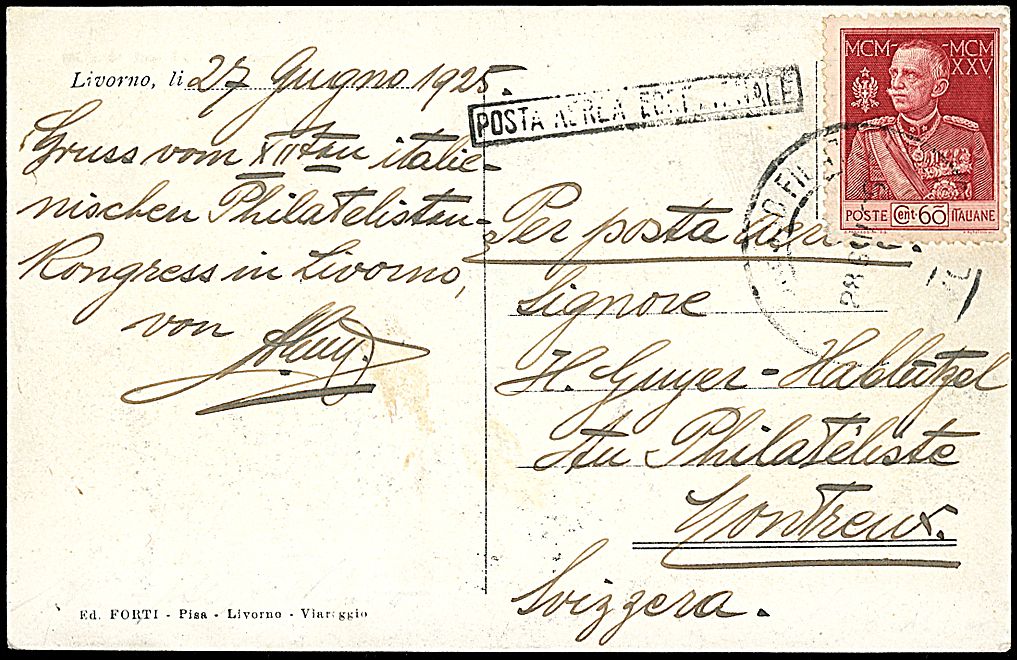 Livorno, li 27 Giugno 1925.
Gruss vom XIIten italie-
nischen Philatelisten-
Kongress in Livorno,
von
Ed. FORTI - Pisa - Livorno - Viareggio
POSTA AEREA
MCM MCM
XXV
POSTE Cent. 60 ITALIANE
Per posta aerea.
Signore
H. Guyer-Hablützel
Au Philatéliste
Montreux.
Svizzera.